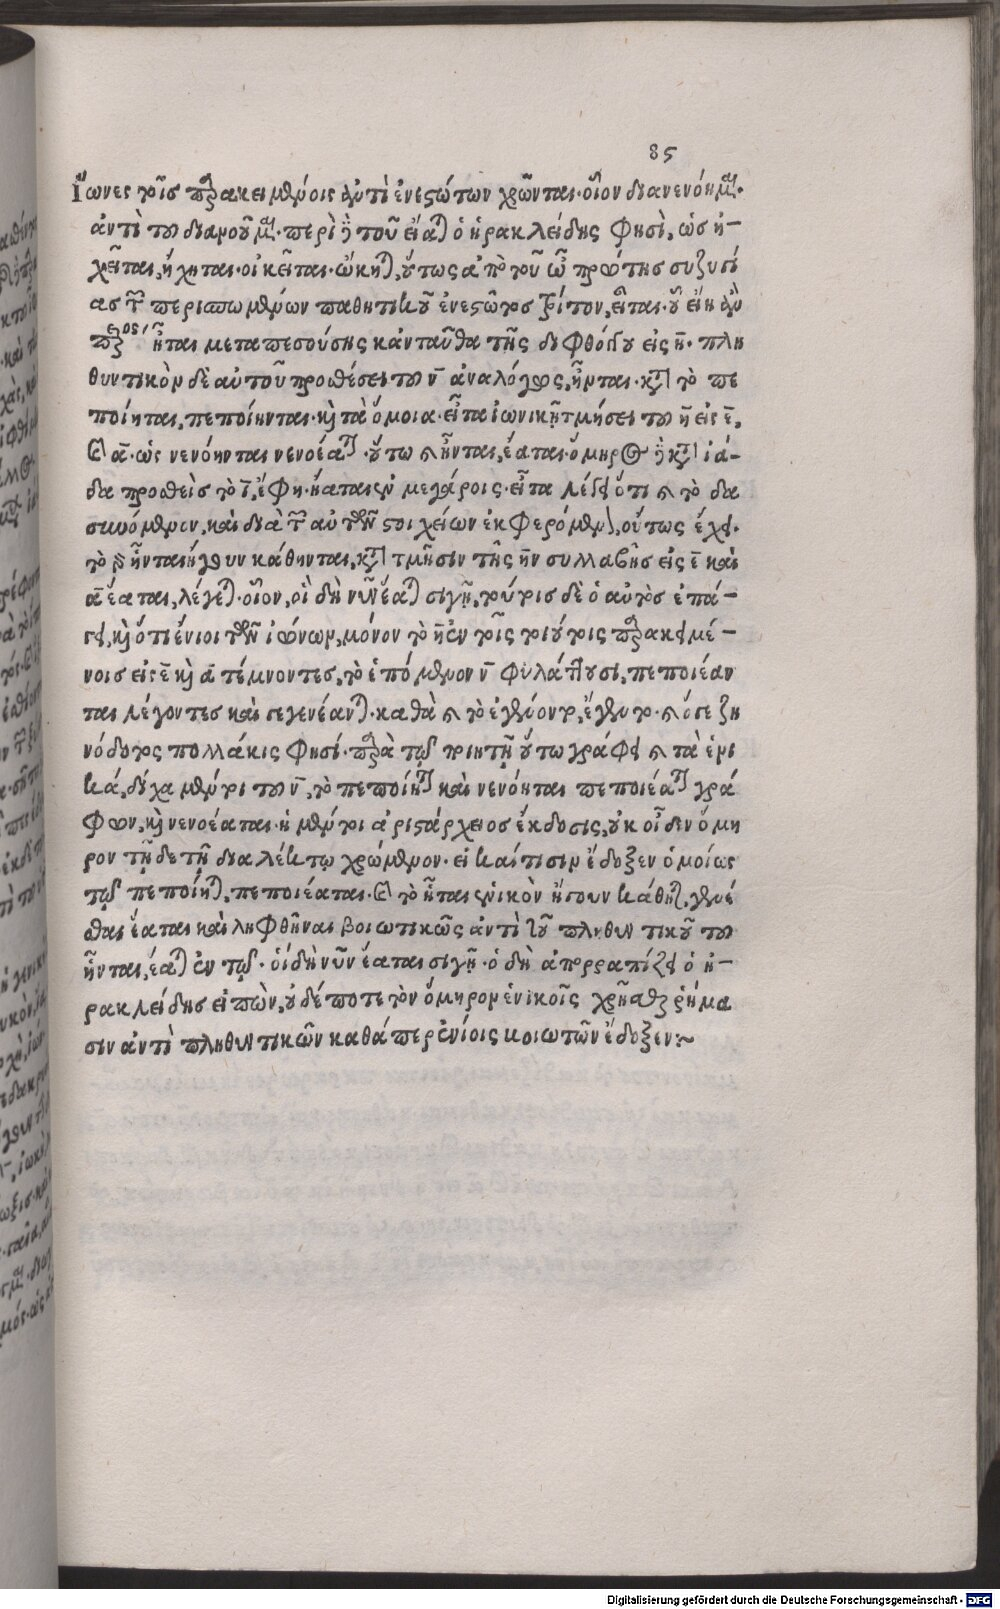 85
Ἴωνες τοῖσ παρακειμένοις ἀντὶ ἐνεστώτων χρῶνται· οἷον διανενόημαι·
ἀντὶ τοῦ διανοοῦμαι· περὶ δὲ τοῦ εἵαται ὁ ἡρακλείδης φησὶ, ὡσ ἡ-
χεῖται, ἤχηται· οἰκεῖται· ὤκηται, οὕτως ἀπὸ τοῦ ὦ πρώτησ συζυγί
ασ τῶν περισπωμένων παθητικοῦ ἐνεστῶτοσ τρίτον, εἷται· οὗ εἴη ἂν
παρακείμενος, ἧται μεταπεσούσης κἀνταῦθα τῆς διφθόγγου εἰς η̄· πλη
θυντικὸν δὲ αὐτοῦ προσθέσει τοῦ ν̄ ἀναλόγως, ἧνται· κατὰ τὸ πε
ποίηται, πεποίηνται· καὶ τὰ ὅμοια· εἶτα ἰωνικῇ τμήσει τοῦ η̄ εἰς ε̄,
καὶ ᾱ· ὡς νενόηνται νενοέαται· οὕτω καὶ ἧνται, ἕαται· ὅμηρος δὲ κατὰ ἰά-
δα προσθεὶσ τὸ ῑ, ἔφη· εἵαται ἐν μεγάροις· εἶτα λέγει ὅτι καὶ τὸ δα
συνόμενον, καὶ διὰ τῶν αὐτῶν στοιχείων ἐκφερόμενον, οὕτως ἔχει·
τὸ γὰρ ἧνται ἤγουν κάθηνται, κατὰ τμῆσιν τῆς η̄ν συλλαβῆσ εἰς ε̄ καὶ
ᾱ ἕαται, λέγεται· οἷον, οἳ δὴ νῦν ἕαται σιγῇ, τούτοισ δὲ ὁ αὐτὸσ ἐπά-
γει, καὶ ὅτι ἔνιοι τῶν ἰώνων, μόνον τὸ η̄ ἐν τοῖς τοιούτοις παρακειμέ-
νοισ εἰς ε̄ καὶ ᾱ τέμνοντεσ, τὸ ἑπόμενον ν̄ φυλάττουσι, πεποιέαν
ται λέγοντεσ καὶ γεγενέανται· καθὰ καὶ τὸ ἐγένοντο, ἐγένετο· καὶ ὅσε ζη
νόδοτος πολλάκις φησί· παρὰ τῷ ποιητῇ οὕτω γράφει καὶ τὰ ἑνι
κά, δίχα μέντοι τοῦ ν̄, τὸ πεποίηται καὶ νενόηται πεποιέαται γρά
φων, καὶ νενοέαται· ἡ μέντοι ἀριστάρχειοσ ἔκδοσις, οὐκ οἶδεν ὅμη
ρον τῇδε τῇ διαλέκτῳ χρώμενον· εἰ καί τισιν ἔδοξεν ὁμοίως
τῷ πεποίηται, πεποιέαται· καὶ τὸ ἧται ἑνικὸν ἤγουν κάθηται, γενέ
σθαι ἕαται καὶ ληφθῆναι βοιωτικῶς ἀντὶ τοῦ πληθυντικοῦ τοῦ
ἧνται, ἕαται ἐν τῷ· οἱ δὴ νῦν ἕαται σιγῇ· ὃ δὴ ἀπορραπίζει ὁ ἡ-
ρακλείδησ εἰπὼν, οὐδέποτε τὸν ὅμηρον ἑνικοῖς χρῆσθαι ῥήμα
σιν ἀντὶ πληθυντικῶν καθάπερ ἐνίοις βοιωτῶν ἔδοξεν:~
Digitalisierung gefördert durch die Deutsche Forschungsgemeinschaft - DFG